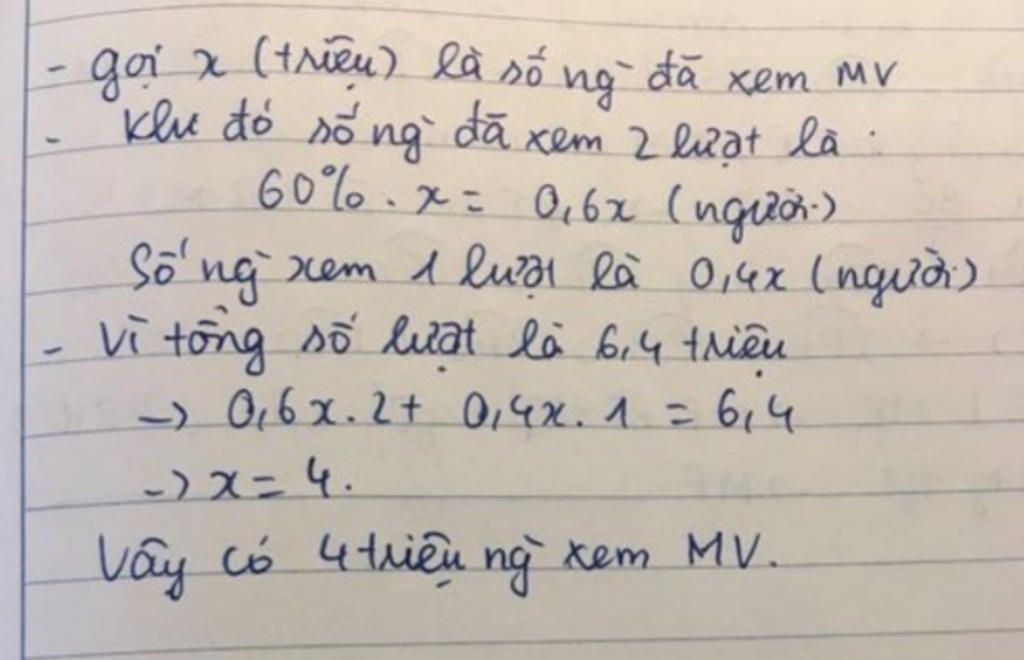 - gọi x (triệu) là số ng` đã xem MV
- Khi đó số ng` đã xem 2 lượt là :
60% . x = 0,6x (người)
Số ng` xem 1 lượt là 0,4x (người)
- Vì tổng số lượt là 6,4 triệu
-> 0,6x. 2 + 0,4x. 1 = 6,4
-> x = 4.
Vây có 4 triệu ng` xem MV.